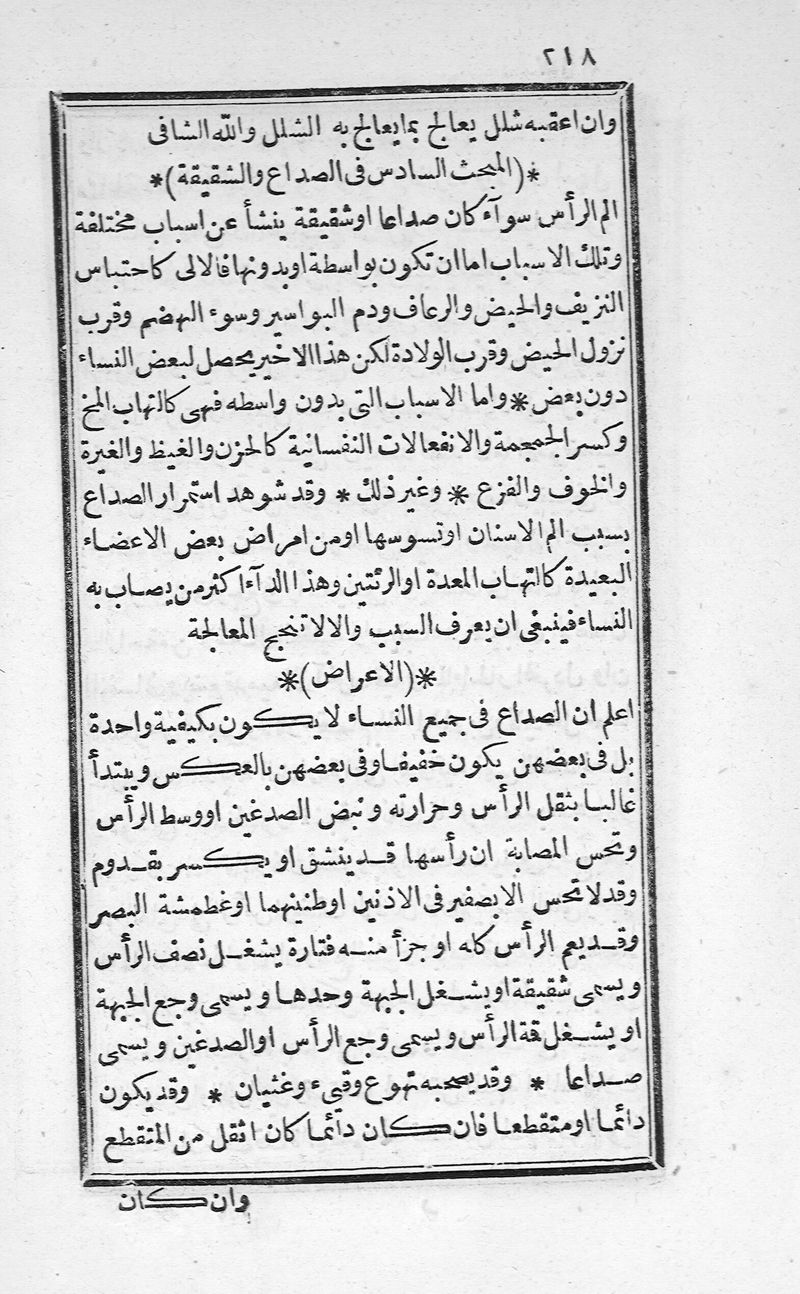 ٢١٨
وان اعقبه شلل يعالج بما يعالج به الشلل والله الشافى
*(المبحث السادس فى الصداع والشقيقة)*
الم الرأس سوآء كان صداعا او شقيقة ينشأ عن اسباب مختلفة
وتلك الاسباب اما ان تكون بواسطة او بدونها فالاولى كاحتباس
النزيف والحيض والرعاف ودم البواسير وسوء الهضم وقرب
نزول الحيض وقرب الولادة لكن هذا الاخير يحصل لبعض النساء
دون بعض * واما الاسباب التى بدون واسطه فهى كالتهاب المخ
وكسر الجمجمة والانفعالات النفسانية كالحزن والغيظ والغيرة
والخوف والفزع * وغير ذلك * وقد شوهد استمرار الصداع
بسبب الم الاسنان او تسوسها او من امراض بعض الاعضاء
البعيدة كالتهاب المعدة او الرئتين وهذا الدآء اكثر من يصاب به
النساء فينبغى ان يعرف السبب والا لا تنجح المعالجة
*(الاعراض)*
اعلم ان الصداع فى جميع النساء لا يكون بكيفية واحدة
بل فى بعضهن يكون خفيفا وفى بعضهن بالعكس ويبتدأ
غالبا بثقل الرأس وحرارته ونبض الصدغين او وسط الرأس
وتحس المصابة ان رأسها قد ينشق او يكسر بقدوم
وقد لا تحس الا بصفير فى الاذنين او طنينهما او غطمشة البصر
وقد يعم الرأس كله او جزأ منه فتارة يشغل نصف الرأس
ويسمى شقيقة او يشغل الجبهة وحدها ويسمى وجع الجبهة
او يشغل قة الرأس ويسمى وجع الرأس او الصدغين ويسمى
صداعا * وقد يصحبه تهوع وقىء وغثيان * وقد يكون
دائما او متقطعا فان كان دائما كان اثقل من المتقطع
وان كان